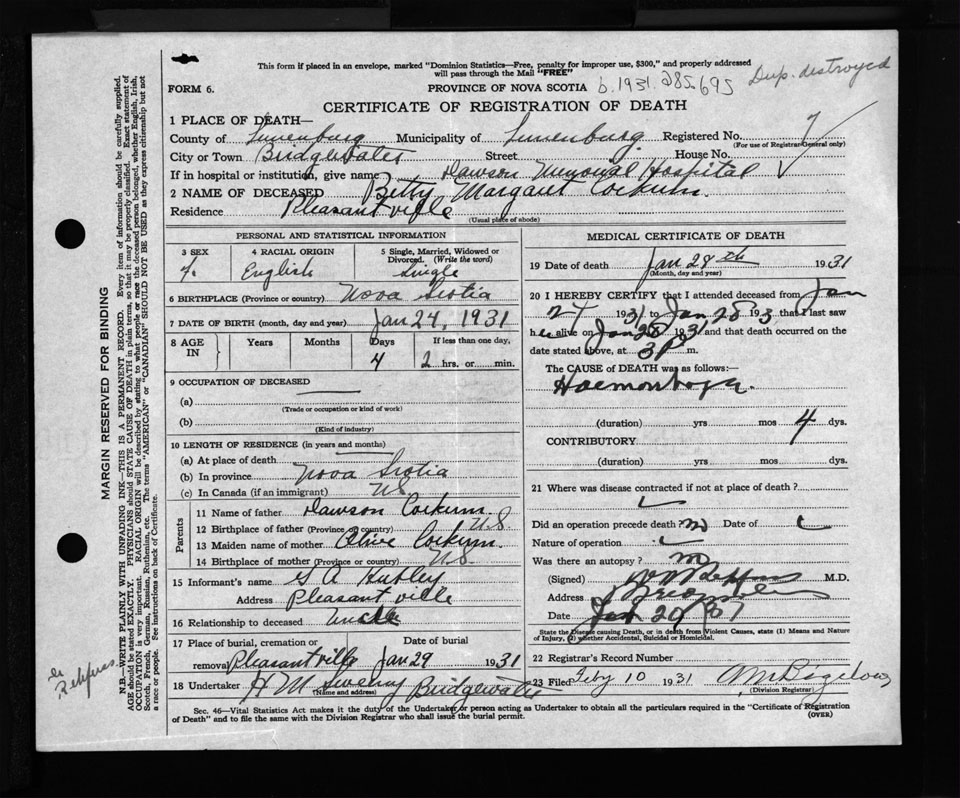 This form if placed in an envelope, marked "Dominion Statistics—Free, penalty for improper use, $300," and properly addressed
will pass through the Mail "FREE"
Dup. destroyed
FORM 6.
PROVINCE OF NOVA SCOTIA b.1931.285695
CERTIFICATE OF REGISTRATION OF DEATH
1 PLACE OF DEATH—
County of Lunenburg Municipality of Lunenburg Registered No. 7
(For use of Registrar-General only)
City or Town Bridgewater Street House No.
If in hospital or institution, give name Dawson Memorial Hospital
2 NAME OF DECEASED Betty Margaret Corkum
Residence Pleasantville
(Usual place of abode)
PERSONAL AND STATISTICAL INFORMATION
3 SEX
4 RACIAL ORIGIN
5 Single, Married, Widowed or
Divorced. (Write the word)
F. English Single
6 BIRTHPLACE (Province or country) Nova Scotia
7 DATE OF BIRTH (month, day and year) Jan 24, 1931
8 AGE
IN
Years Months Days If less than one day,
4 2 hrs. or min.
9 OCCUPATION OF DECEASED
(a)
(Trade or occupation or kind of work)
(b)
(Kind of industry)
10 LENGTH OF RESIDENCE (in years and months)
(a) At place of death
(b) In province Nova Scotia
(c) In Canada (if an immigrant) NS
Parents
11 Name of father Dawson Corkum
12 Birthplace of father (Province or country) N.S.
13 Maiden name of mother Olive Corkum
14 Birthplace of mother (Province or country) NS.
15 Informant's name S A Hubley
Address Pleasantville
16 Relationship to deceased Uncle
17 Place of burial, cremation or Date of burial
removal Pleasantville Jan 29 1931
18 Undertaker H M Sweeny Bridgewater
(Name and address)
MEDICAL CERTIFICATE OF DEATH
19 Date of death Jan 28th 1931
(Month, day and year)
20 I HEREBY CERTIFY that I attended deceased from Jan
24 1931 to Jan 28 193 that I last saw
her alive on Jan 28 1931 and that death occurred on the
date stated above, at 3 P m.
The CAUSE OF DEATH was as follows:—
Haemorrhage
(duration) yrs mos 4 dys.
CONTRIBUTORY
(duration) yrs mos dys.
21 Where was disease contracted if not at place of death?
Did an operation precede death? no Date of
Nature of operation
Was there an autopsy? no
(Signed) M.D.
Address
Date
State the Disease causing Death, or in death from Violent Causes, state (1) Means and Nature
of Injury, (2) whether Accidental, Suicidal or Homicidal.
22 Registrar's Record Number
23 Filed Feby 10 1931
(Division Registrar)
Sec. 46—Vital Statistics Act makes it the duty of the Undertaker or person acting as Undertaker to obtain all the particulars required in the "Certificate of Registration
of Death" and to file the same with the Division Registrar who shall issue the burial permit.
(OVER)
MARGIN RESERVED FOR BINDING
N.B.—WRITE PLAINLY WITH UNFADING INK—THIS IS A PERMANENT RECORD. Every item of information should be carefully supplied.
AGE should be stated EXACTLY. PHYSICIANS should STATE CAUSE OF DEATH in plain terms, so that it may be properly classified. Exact statement of
OCCUPATION is very important. RACIAL ORIGIN will be described by stating to what people or race the deceased person belonged, whether English, Irish,
Scotch, French, German, Russian, Ruthenian, etc. The terms "AMERICAN" or "CANADIAN" SHOULD NOT BE USED as they express citizenship but not
a race or people. See instructions on back of Certificate.